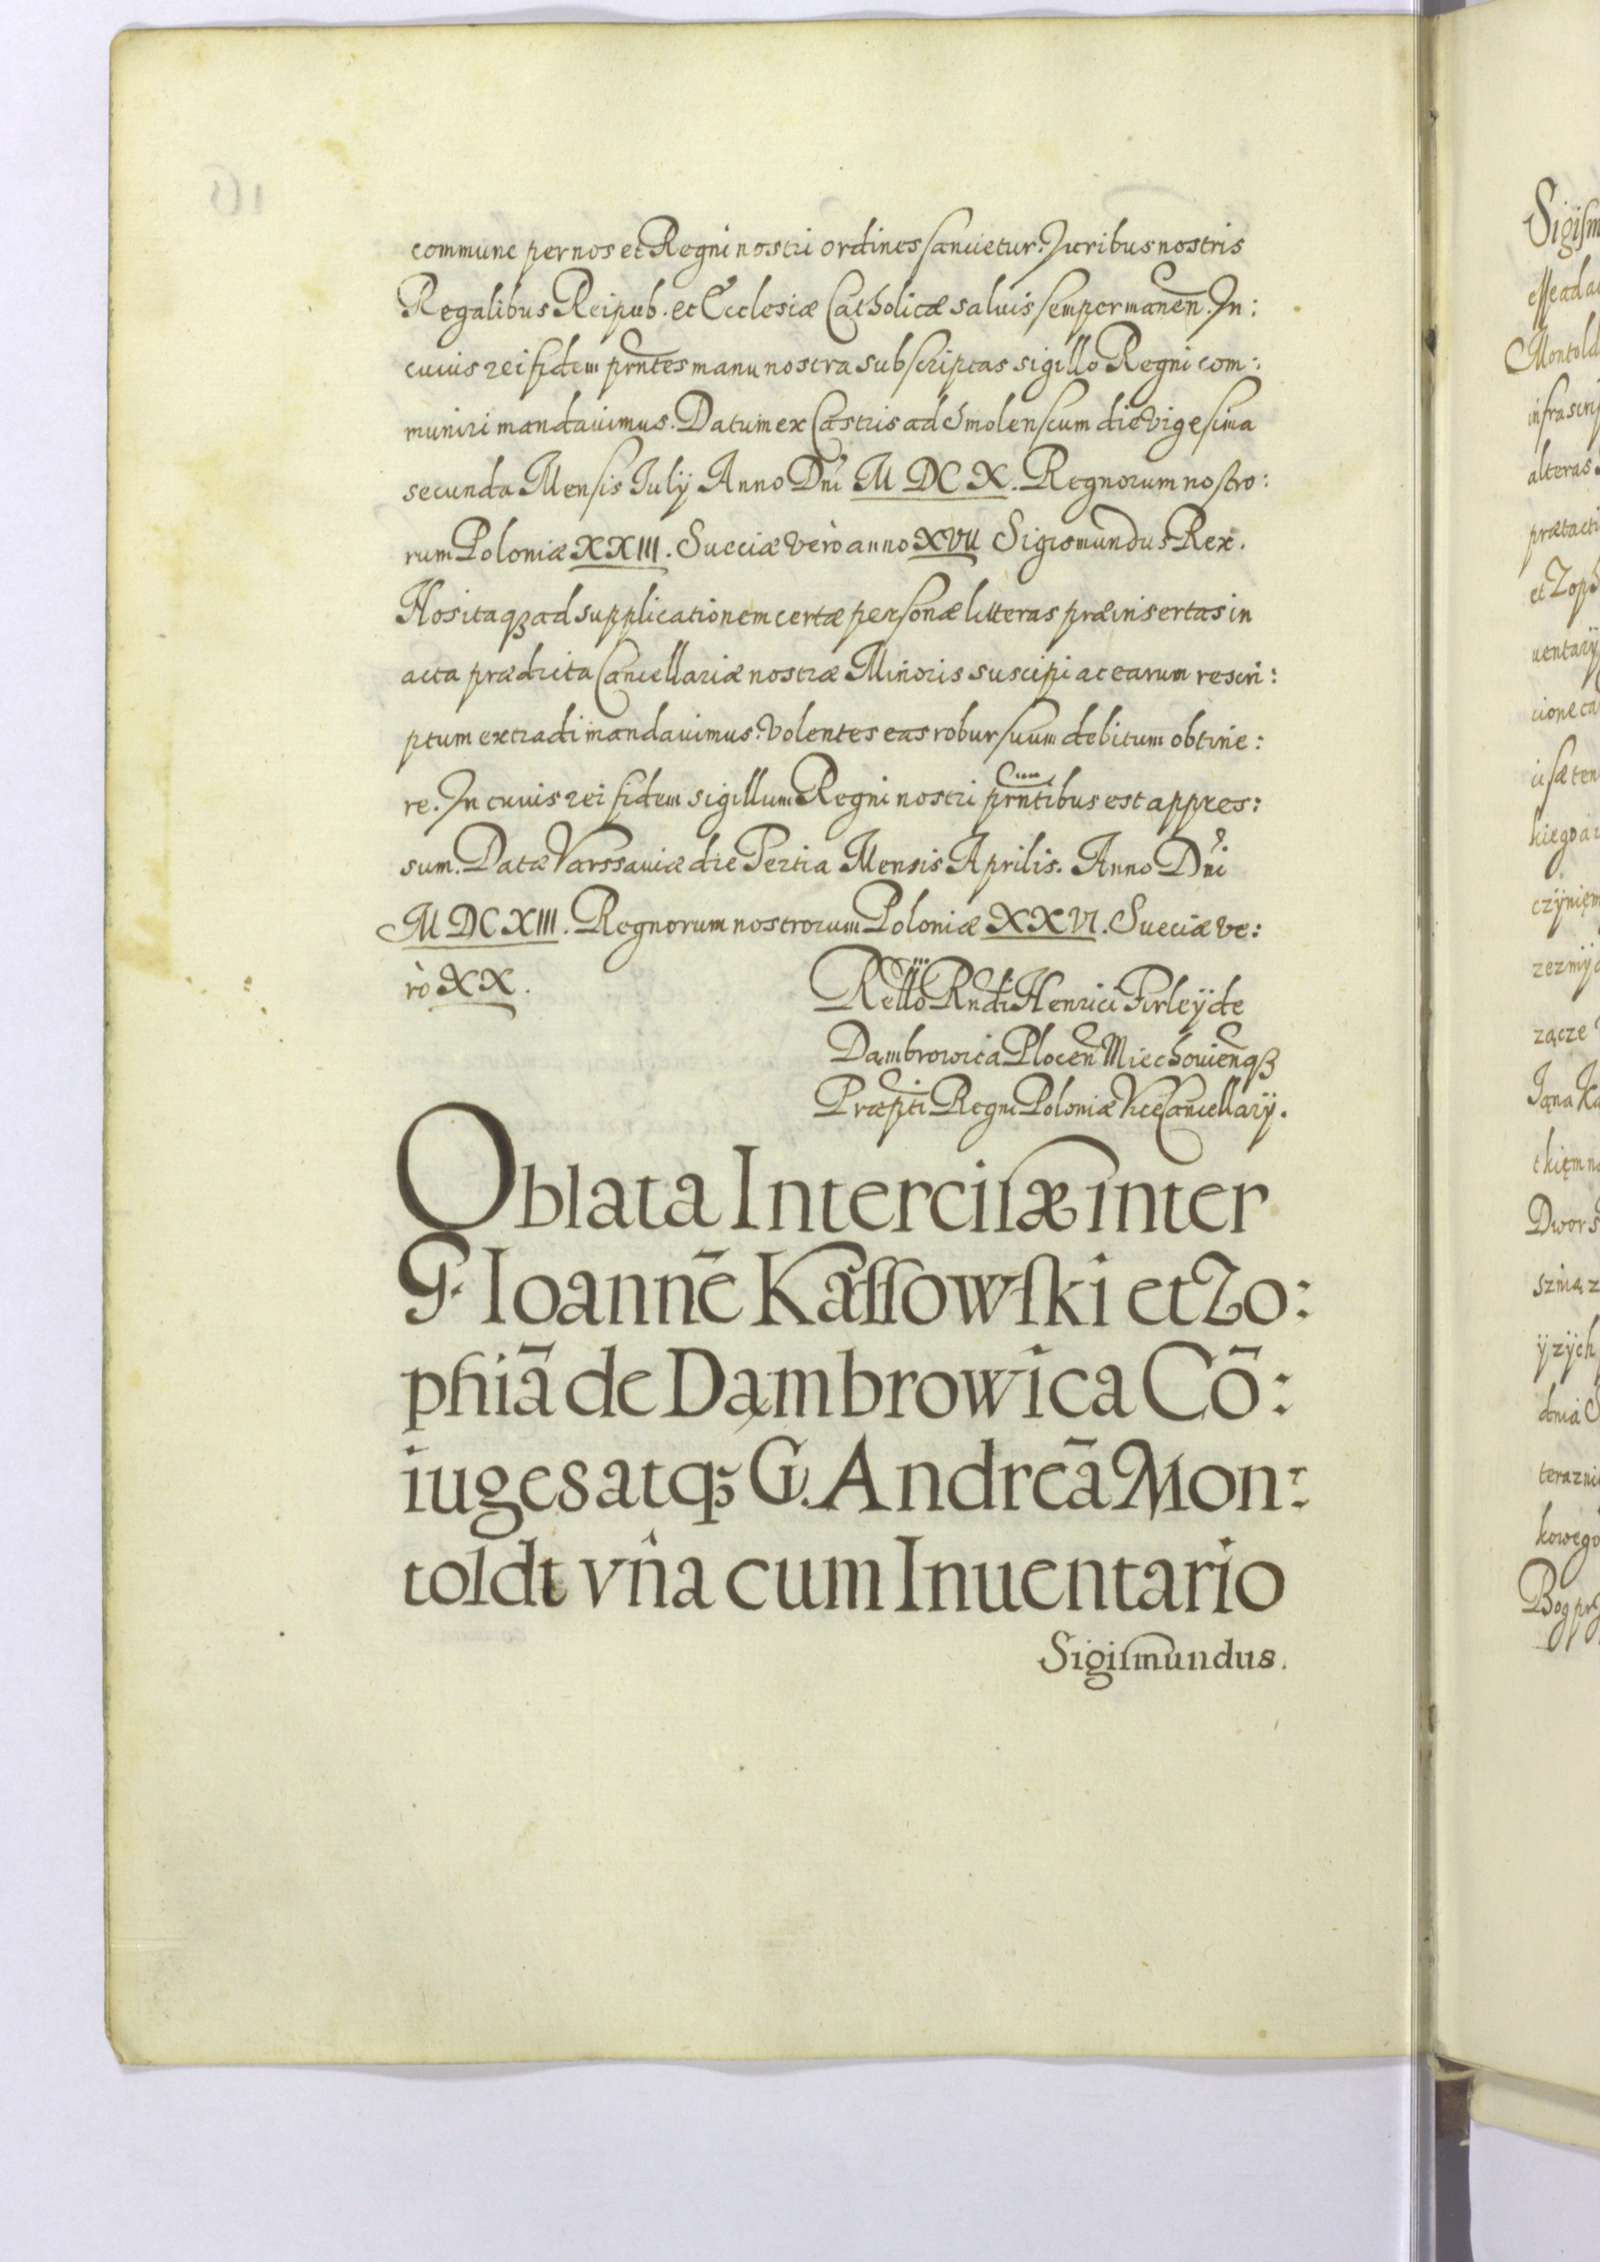 commune per nos et Regni nostri ordines sancietur. Juribus nostris
Regalibus Reipub. et Ecclesiæ Catholicæ salvis semper manen̄. In:
cuius rei fidem prn̄tes manu nostra subscriptas sigillo Regni com:
muniri mandavimus. Datum ex Castris ad Smolenscum die vigesima
secunda Mensis July Anno Dni M DC X. Regnorum nostro:
rum Poloniæ XXIII. Sueciæ verò anno XVII Sigismundus Rex.
Nos itaqꝫ ad supplicationem certæ personæ litteras præinsertas in
acta prædicta Cancellariæ nostræ Minoris suscipi ac earum rescri:
ptum extradi mandavimus. Volentes eas robur suum debitum obtine:
re. In cuius rei fidem sigillum Regni nostri prn̄tibus est appres:
sum. Datæ Varssaviæ die Tertia Mensis Aprilis. Anno Dn̄i
M DC XIII. Regnorum nostrorum Poloniæ XXVI. Sueciæ ve:
rò XX.
Rello Rndi Henrici Firleÿ de
Dambrowica Plocen̄ Miechovien̄qꝫ
Præpti Regni Poloniæ ViceCancellarÿ.
Oblata Interciſæ inter
G. Ioannē Kaſſowſki et Zo:
phiā de Dąmbrowica Cō:
iuges atqꝫ G. Andreā Mon:
toldt vn̂a cum Inuentario
Sigiſmundus.
Sigiſm
eſſe ad a
Montold
infrascrip
alteras
prætacti
et Zoph
uentarÿ
cione ca
hiego a
czÿnięm
zezmÿ
zącze
Jąna Ka
tkięm n
Dwor s
ÿ zÿch
dnia S
terazni
kowego
Bog prz